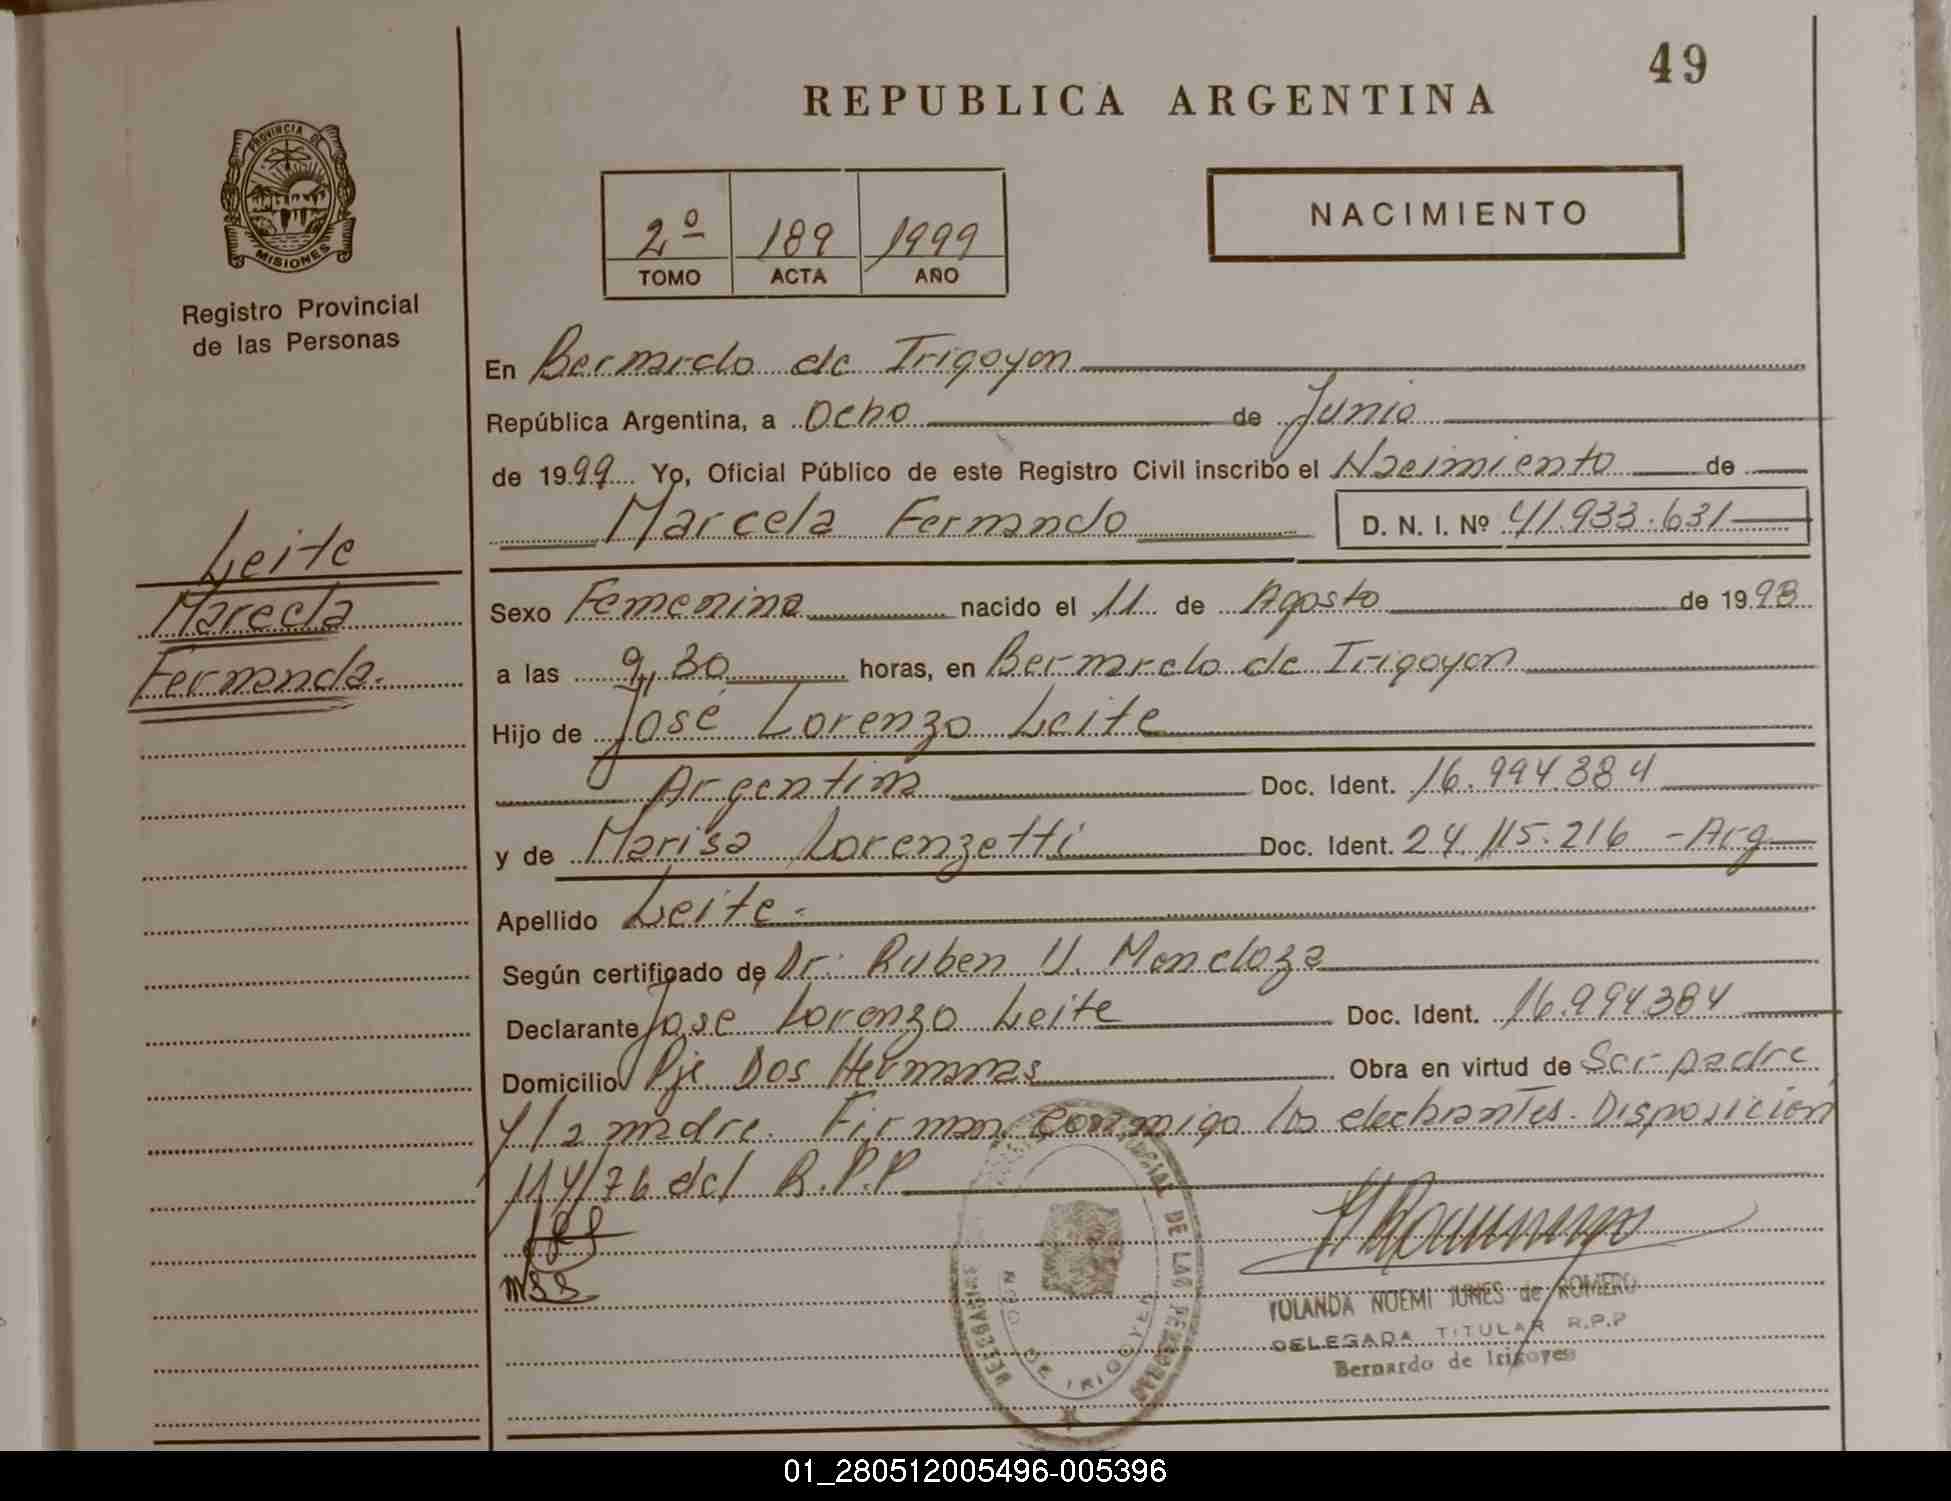 49
REPUBLICA ARGENTINA
PROVINCIA DE
MISIONES
Registro Provincial
de las Personas
2º 189 1999
TOMO ACTA AÑO
NACIMIENTO
En Bernardo de Irigoyen
República Argentina, a Ocho de Junio
de 1999 Yo, Oficial Público de este Registro Civil inscribo el Nacimiento de
Marcela Fernanda D. N. I. Nº 41.933.631
Leite
Marcela
Fernanda.
Sexo Femenino nacido el 11 de Agosto de 1998
a las 9,30 horas, en Bernardo de Irigoyen
Hijo de José Lorenzo Leite
Argentina Doc. Ident. 16.994.384
y de Marisa Lorenzetti Doc. Ident. 24.115.216 - Arg
Apellido Leite -
Según certificado de Dr. Ruben U.
Declarante Jose Lorenzo Leite Doc. Ident. 16.994.384
Domicilio Pje Dos Hermanas Obra en virtud de Ser padre
y la madre. Firman conmigo los declarantes. Disposición
114/76 del R.P.P
YOLANDA NOEMI JUNES de ROMERO
DELEGADA TITULAR R.P.P
Bernardo de Irigoyen
01_280512005496-005396